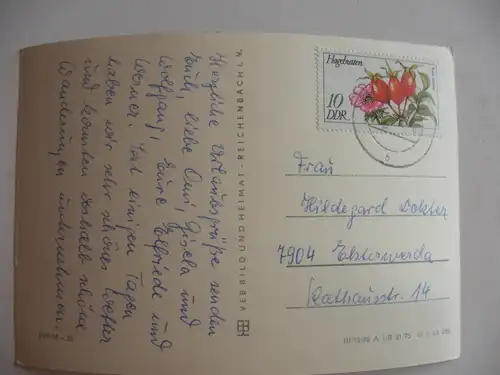 Herzliche Urlaubsgrüße senden
Euch, liebe Omi, Gisela und
Wolfgang, Eure Elfriede und
Werner. Seit einigen Tagen
haben wir sehr schönes Wetter
und konnten deshalb schöne
Wanderungen unternehmen.
VEB BILD UND HEIMAT · REICHENBACH I. V.
Hagebutten
10
DDR
Frau
Hildegard Dokter
7904 Elsterwerda
Rathausstr. 14